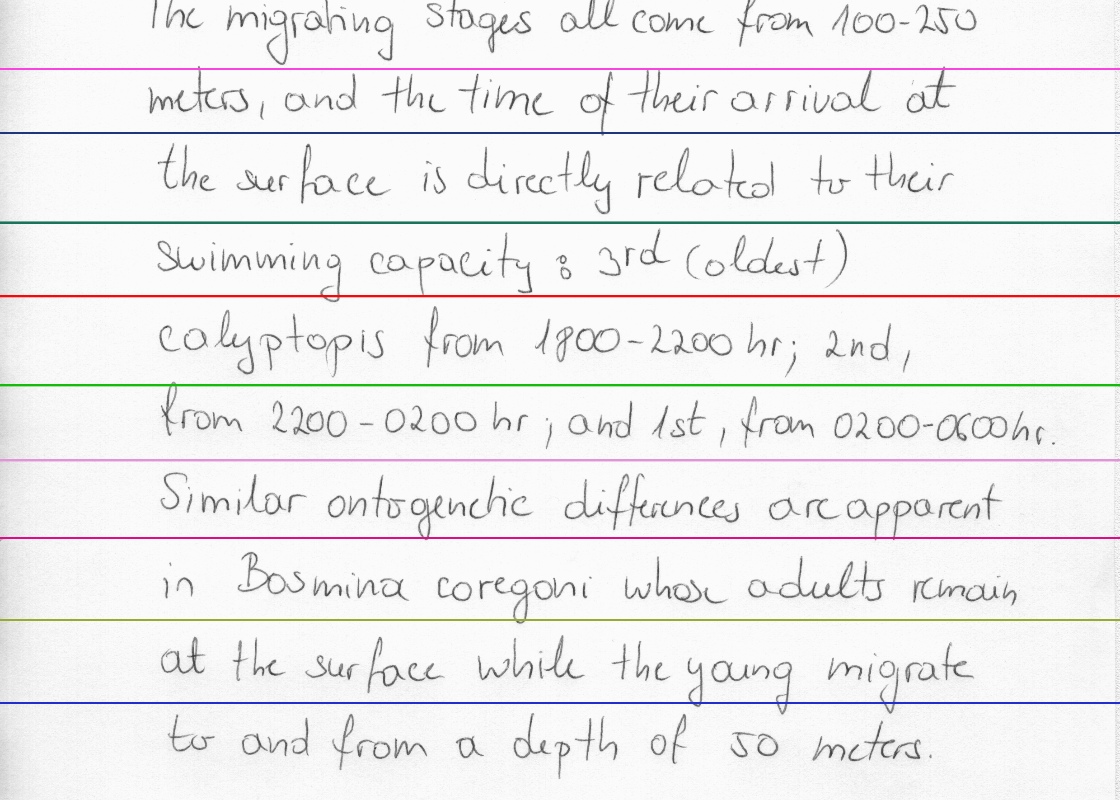 The migrating stages all come from 100-250
meters, and the time of their arrival at
the surface is directly related to their
swimming capacity : 3rd (oldest)
calyptopis from 1800-2200 hr; 2nd,
from 2200-0200 hr; and 1st, from 0200-0600hr.
Similar ontogenetic differences are apparent
in Bosmina coregoni whose adults remain
at the surface while the young migrate
to and from a depth of 50 meters.